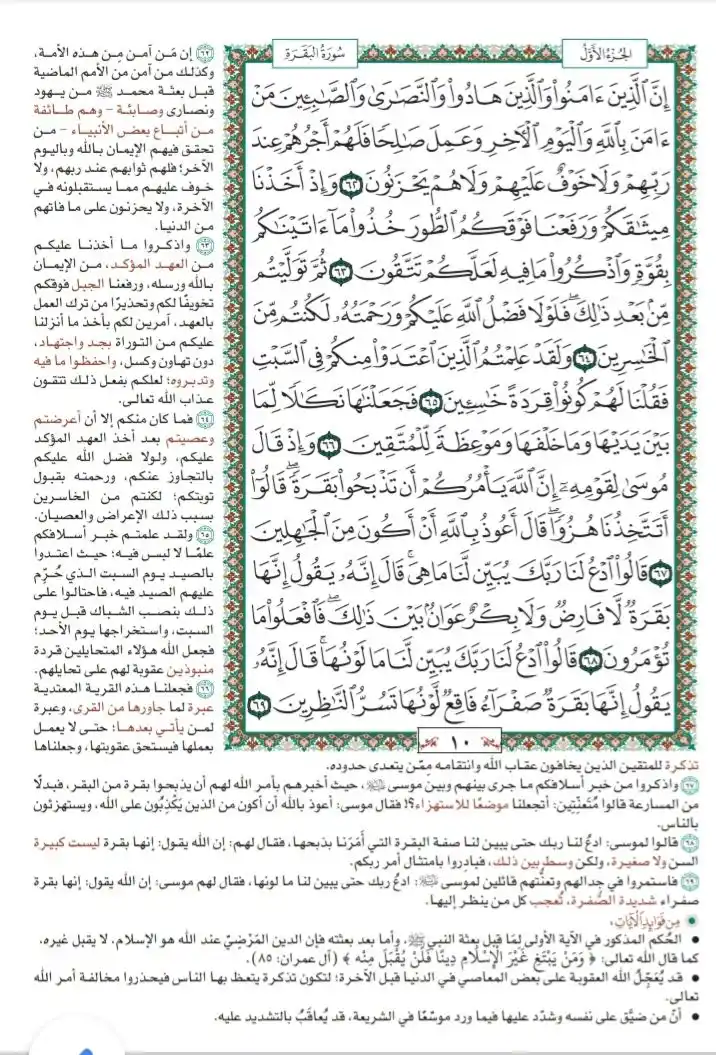 الجزء الأول
سورة البقرة
إِنَّ ٱلَّذِينَ ءَامَنُوا۟ وَٱلَّذِينَ هَادُوا۟ وَٱلنَّصَـٰرَىٰ وَٱلصَّـٰبِـِٔينَ مَنْ
ءَامَنَ بِٱللَّهِ وَٱلْيَوْمِ ٱلْـَٔاخِرِ وَعَمِلَ صَـٰلِحًا فَلَهُمْ أَجْرُهُمْ عِندَ
رَبِّهِمْ وَلَا خَوْفٌ عَلَيْهِمْ وَلَا هُمْ يَحْزَنُونَ ٦٢ وَإِذْ أَخَذْنَا
مِيثَـٰقَكُمْ وَرَفَعْنَا فَوْقَكُمُ ٱلطُّورَ خُذُوا۟ مَآ ءَاتَيْنَـٰكُم
بِقُوَّةٍ وَٱذْكُرُوا۟ مَا فِيهِ لَعَلَّكُمْ تَتَّقُونَ ٦٣ ثُمَّ تَوَلَّيْتُم
مِّنۢ بَعْدِ ذَٰلِكَ ۖ فَلَوْلَا فَضْلُ ٱللَّهِ عَلَيْكُمْ وَرَحْمَتُهُۥ لَكُنتُم مِّنَ
ٱلْخَـٰسِرِينَ ٦٤ وَلَقَدْ عَلِمْتُمُ ٱلَّذِينَ ٱعْتَدَوْا۟ مِنكُمْ فِى ٱلسَّبْتِ
فَقُلْنَا لَهُمْ كُونُوا۟ قِرَدَةً خَـٰسِـِٔينَ ٦٥ فَجَعَلْنَـٰهَا نَكَـٰلًا لِّمَا
بَيْنَ يَدَيْهَا وَمَا خَلْفَهَا وَمَوْعِظَةً لِّلْمُتَّقِينَ ٦٦ وَإِذْ قَالَ
مُوسَىٰ لِقَوْمِهِۦٓ إِنَّ ٱللَّهَ يَأْمُرُكُمْ أَن تَذْبَحُوا۟ بَقَرَةً ۖ قَالُوٓا۟
أَتَتَّخِذُنَا هُزُوًا ۖ قَالَ أَعُوذُ بِٱللَّهِ أَنْ أَكُونَ مِنَ ٱلْجَـٰهِلِينَ
٦٧ قَالُوا۟ ٱدْعُ لَنَا رَبَّكَ يُبَيِّن لَّنَا مَا هِىَ ۚ قَالَ إِنَّهُۥ يَقُولُ إِنَّهَا
بَقَرَةٌ لَّا فَارِضٌ وَلَا بِكْرٌ عَوَانٌۢ بَيْنَ ذَٰلِكَ ۖ فَٱفْعَلُوا۟ مَا
تُؤْمَرُونَ ٦٨ قَالُوا۟ ٱدْعُ لَنَا رَبَّكَ يُبَيِّن لَّنَا مَا لَوْنُهَا ۚ قَالَ إِنَّهُۥ
يَقُولُ إِنَّهَا بَقَرَةٌ صَفْرَآءُ فَاقِعٌ لَّوْنُهَا تَسُرُّ ٱلنَّـٰظِرِينَ ٦٩
١٠
٦٢ إن مَن آمن مِن هذه الأمة،
وكذلك من آمن من الأمم الماضية
قبل بعثة محمد ﷺ من يهود
ونصارى وصابئة - وهم طائفة
من أتباع بعض الأنبياء - من
تحقق فيهم الإيمان بالله وباليوم
الآخر؛ فلهم ثوابهم عند ربهم، ولا
خوف عليهم مما يستقبلونه في
الآخرة، ولا يحزنون على ما فاتهم
من الدنيا.
٦٣ واذكروا ما أخذنا عليكم
من العهد المؤكد، من الإيمان
بالله ورسله، ورفعنا الجبل فوقكم
تخويفًا لكم وتحذيرًا من ترك العمل
بالعهد، آمرين لكم بأخذ ما أنزلنا
عليكم من التوراة بجد واجتهاد،
دون تهاون وكسل، واحفظوا ما فيه
وتدبروه؛ لعلكم بفعل ذلك تتقون
عذاب الله تعالى.
٦٤ فما كان منكم إلا أن أعرضتم
وعصيتم بعد أخذ العهد المؤكد
عليكم، ولولا فضل الله عليكم
بالتجاوز عنكم، ورحمته بقبول
توبتكم؛ لكنتم من الخاسرين
بسبب ذلك الإعراض والعصيان.
٦٥ ولقد علمتم خبر أسلافكم
علمًا لا لبس فيه؛ حيث اعتدوا
بالصيد يوم السبت الذي حُرِّم
عليهم الصيد فيه، فاحتالوا على
ذلك بنصب الشباك قبل يوم
السبت، واستخراجها يوم الأحد؛
فجعل الله هؤلاء المتحايلين قردة
منبوذين عقوبة لهم على تحايلهم.
٦٦ فجعلنا هذه القرية المعتدية
عبرة لما جاورها من القرى، وعبرة
لمن يأتي بعدها؛ حتى لا يعمل
بعملها فيستحق عقوبتها، وجعلناها
تذكرة للمتقين الذين يخافون عقاب الله وانتقامه مِمَّن يتعدى حدوده.
٦٧ واذكروا من خبر أسلافكم ما جرى بينهم وبين موسى ﵇، حيث أخبرهم بأمر الله لهم أن يذبحوا بقرة من البقر، فبدلًا
من المسارعة قالوا مُتَعنِّتين: أتجعلنا موضعًا للاستهزاء؟! فقال موسى: أعوذ بالله أن أكون من الذين يَكْذِبُون على الله، ويستهزئون
بالناس.
٦٨ قالوا لموسى: ادعُ لنا ربك حتى يبين لنا صفة البقرة التي أَمَرَنا بذبحها، فقال لهم: إن الله يقول: إنها بقرة ليست كبيرة
السن ولا صغيرة، ولكن وسط بين ذلك، فبادِروا بامتثال أمر ربكم.
٦٩ فاستمروا في جدالهم وتعنُّتهم قائلين لموسى ﵇: ادعُ ربك حتى يبين لنا ما لونها، فقال لهم موسى: إن الله يقول: إنها بقرة
صفراء شديدة الصُّفرة، تُعجب كل من ينظر إليها.
• مِن فَوَائِدِ الآيَاتِ،
• الحُكم المذكور في الآية الأولى لِمَا قبل بعثة النبي ﷺ، وأما بعد بعثته فإن الدين المَرْضِيَّ عند الله هو الإسلام، لا يقبل غيره،
كما قال الله تعالى: ﴿ وَمَنْ يَبْتَغِ غَيْرَ الْإِسْلَامِ دِينًا فَلَنْ يُقْبَلَ مِنْه ﴾ (آل عمران: ٨٥).
• قد يُعَجِّلُ الله العقوبة على بعض المعاصي في الدنيا قبل الآخرة؛ لتكون تذكرة يتعظ بها الناس فيحذروا مخالفة أمر الله
تعالى.
• أنّ من ضيَّق على نفسه وشدّد عليها فيما ورد موسَّعًا في الشريعة، قد يُعاقَبُ بالتشديد عليه.